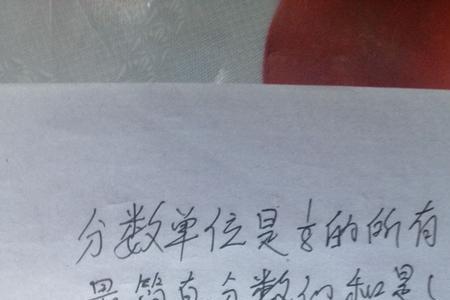 分数单位是1/8的所有
最简真分数的和是(